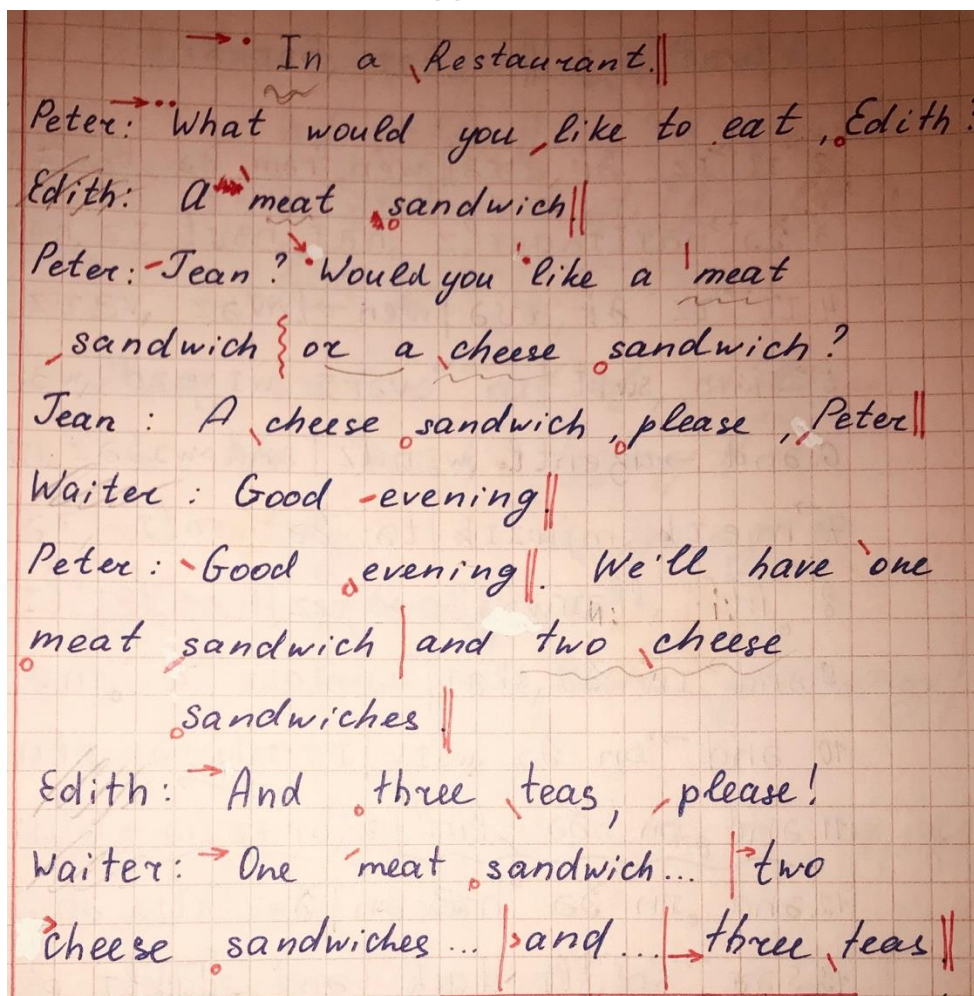 In a Restaurant.
Peter: What would you like to eat, Edith?
Edith: A meat sandwich
Peter: Jean? Would you like a meat
sandwich or a cheese sandwich?
Jean: A cheese sandwich, please, Peter
Waiter: Good evening!
Peter: Good evening. We'll have one
meat sandwich and two cheese
sandwiches
Edith: And three teas, please!
Waiter: One meat sandwich... two
cheese sandwiches... and... three teas